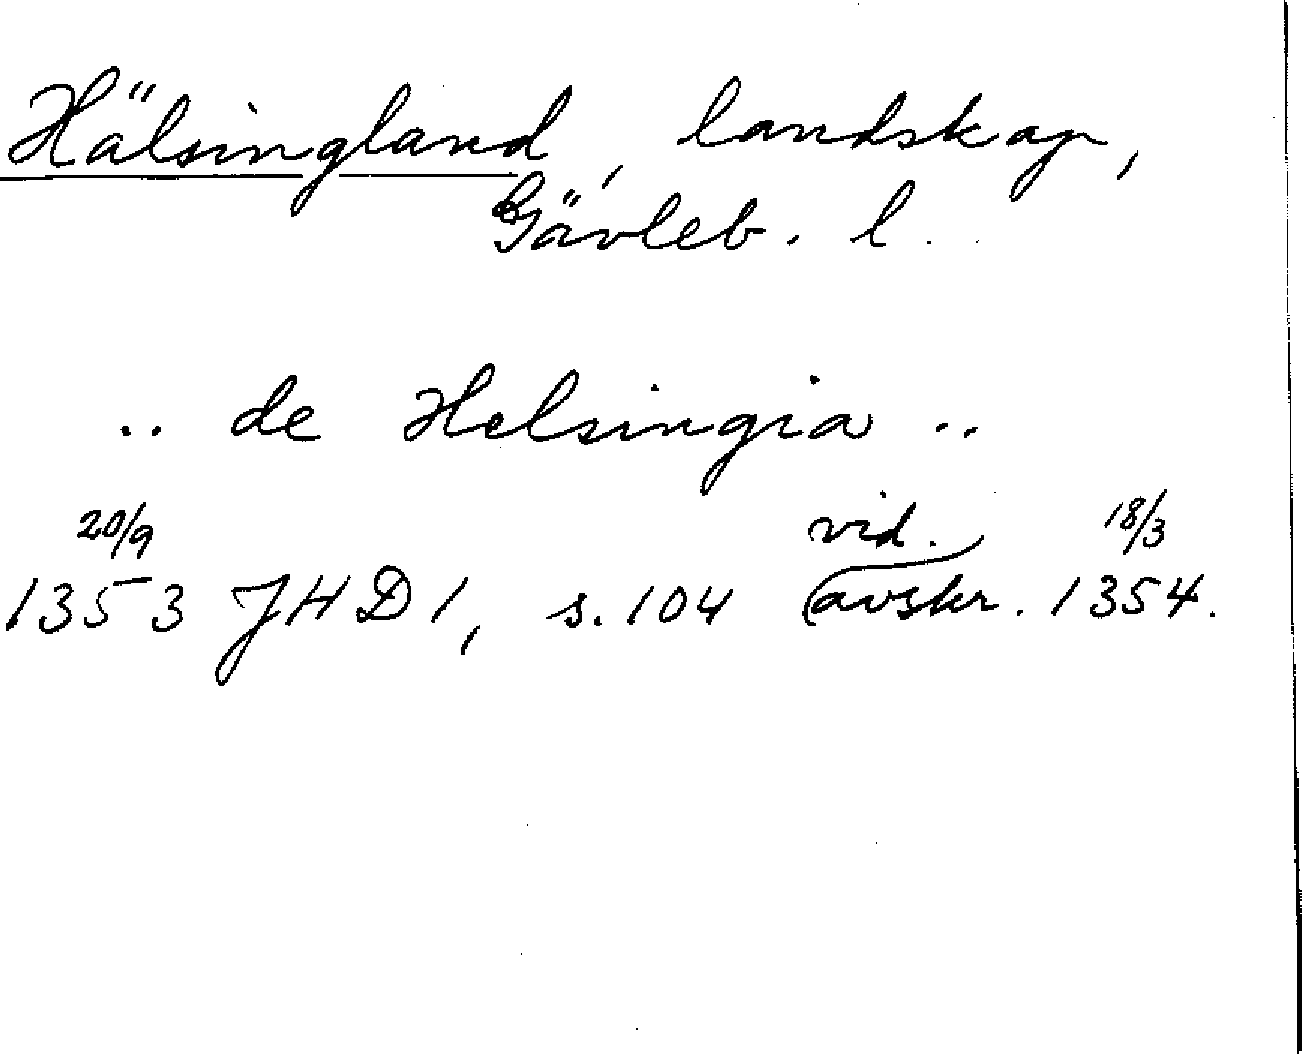 Hälsingland, landskap,
Gävleb. l.
.. de Helsingia ..
20/9 vid. 18/3
1353 JHD 1, s. 104 avskr. 1354.